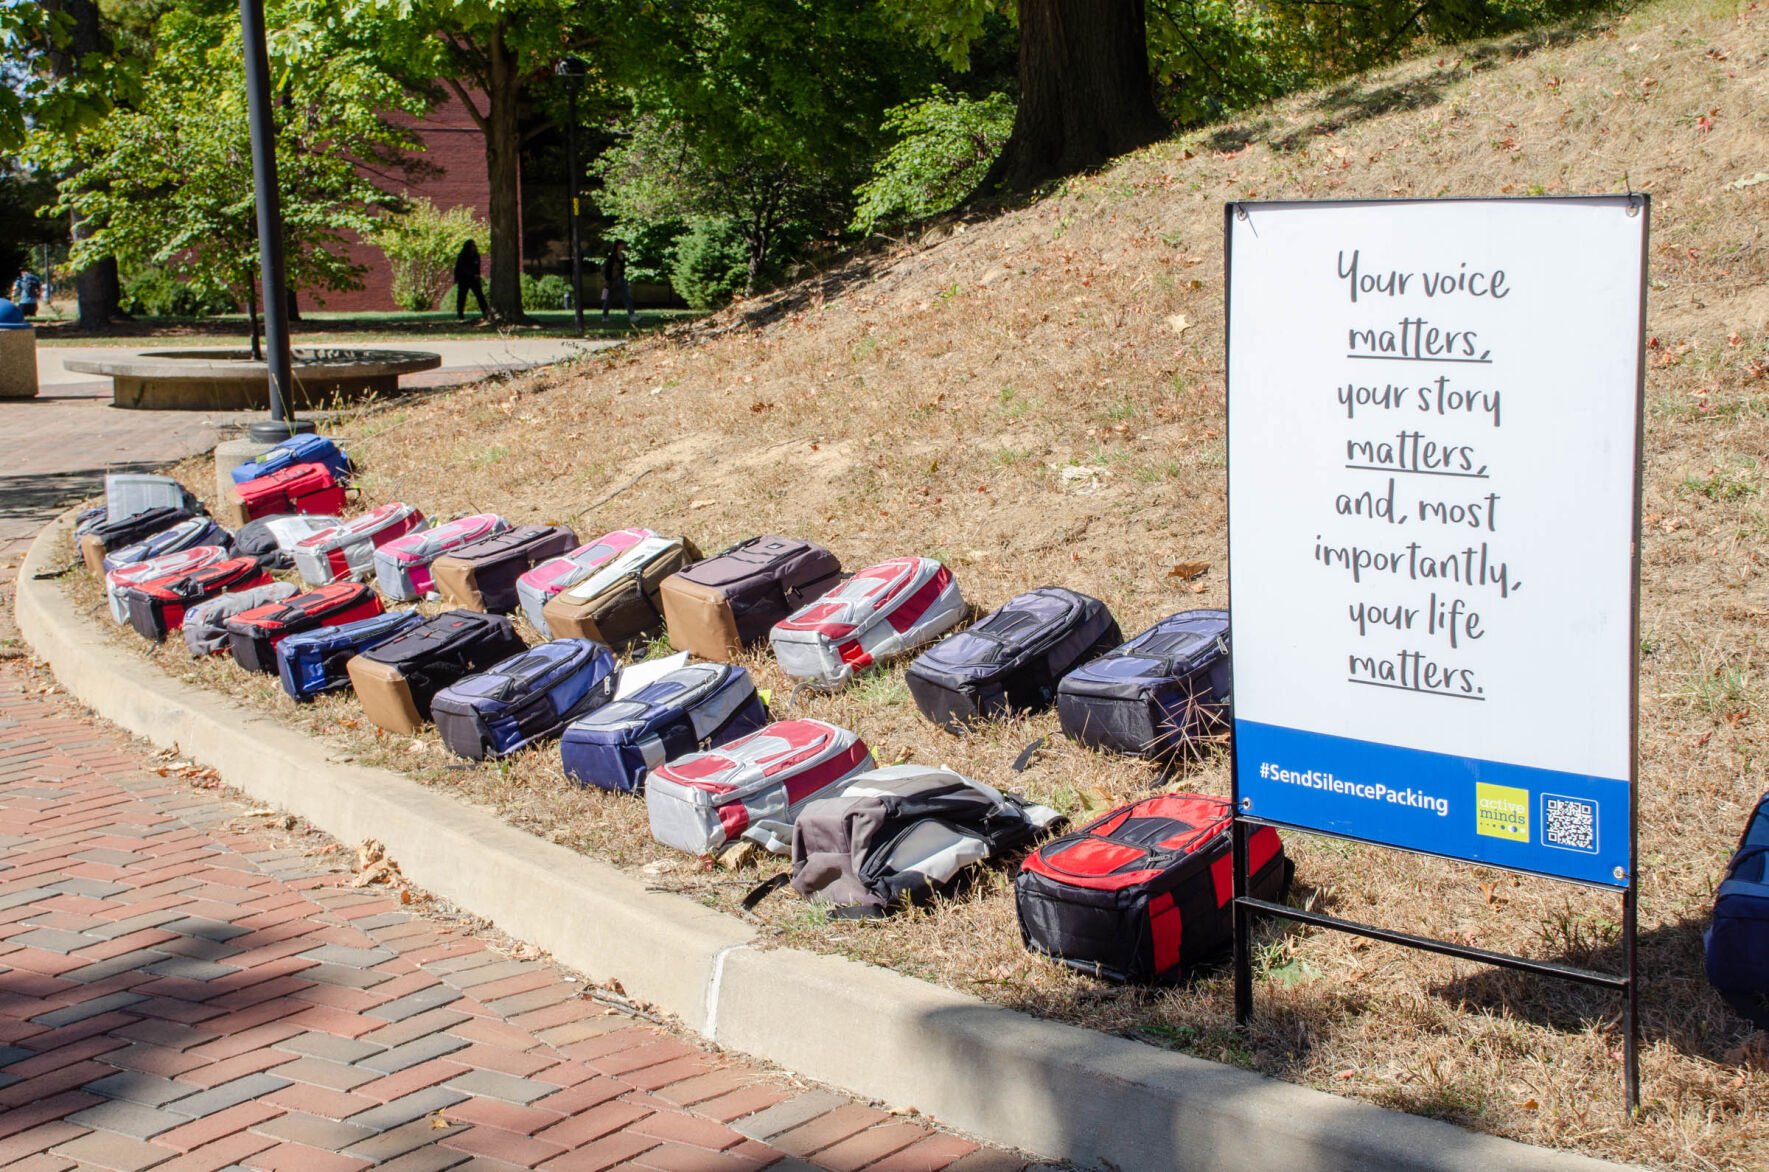 Your voice
matters,
your story
matters,
and, most
importantly,
your life
matters.
#SendSilencePacking
active
minds